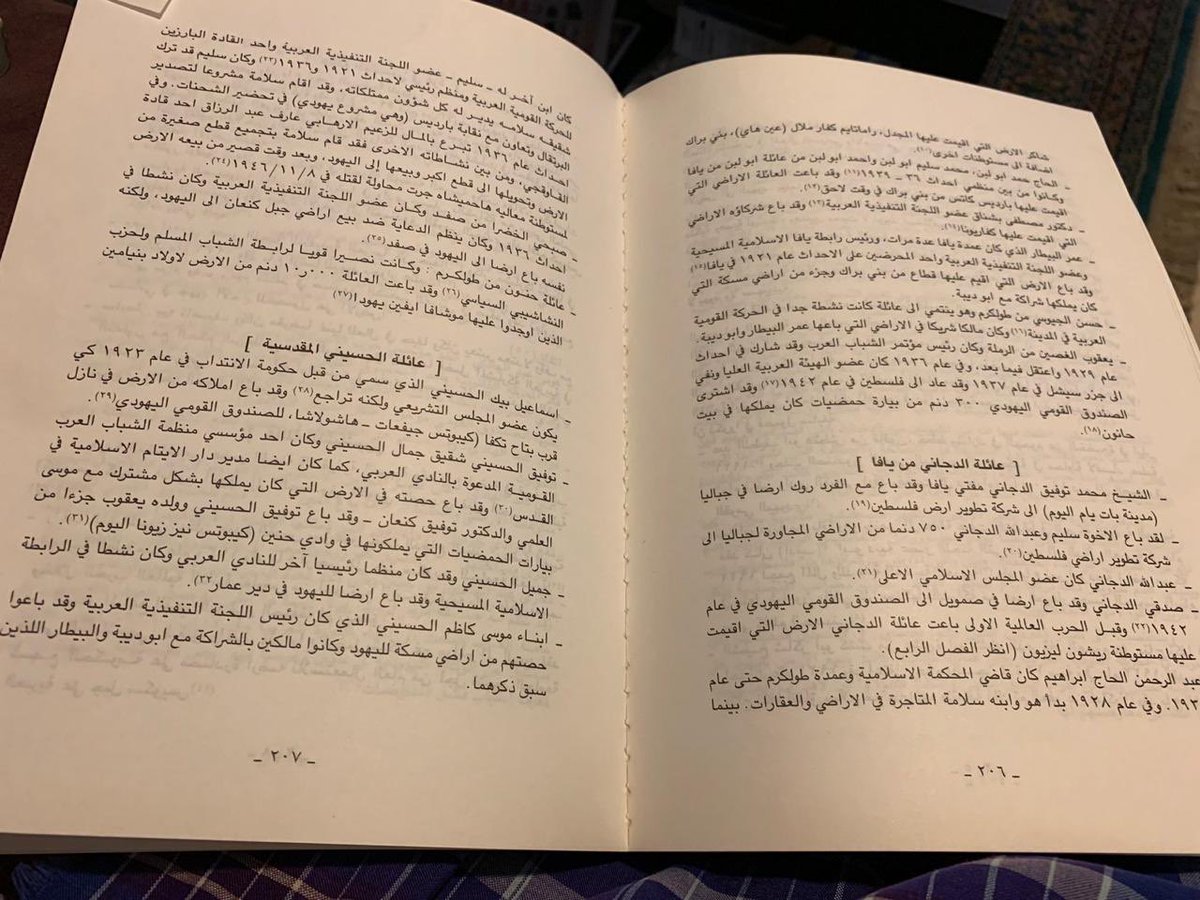 شاكر الارض التي اقيمت عليها المجدل، راماتايم كفار ملال (عين هاي)، بني براك
اضافة الى مستوطنات اخرى(١٠).
- الحاج حمد ابو لبن، محمد سليم ابو لبن واحمد ابو لبن من عائلة ابو لبن من يافا
وكانوا من بين منظمي احداث ٣٦ - ١٩٣٩(١١) وقد باعت العائلة الاراضي التي
اقيمت عليها بارديس كاتس من بني براك في وقت لاحق(١٢).
- دكتور مصطفى بشناق عضو اللجنة التنفيذية العربية(١٣) وقد باع شركاؤه الاراضي
التي اقيمت عليها كفاريونا(١٤).
- عمر البيطار الذي كان عمدة يافا عدة مرات، ورئيس رابطة يافا الاسلامية المسيحية
وعضو اللجنة التنفيذية العربية واحد المحرضين على الاحداث عام ١٩٢١ في يافا(١٥)
وقد باع الارض التي اقيم عليها قطاع من بني براك وجزء من اراضي مسكة التي
كان يملكها شراكة مع ابو ديبة.
- حسن الجيوسي من طولكرم وهو ينتمي الى عائلة كانت نشطة جدا في الحركة القومية
العربية في المدينة(١٦) وكان مالكا شريكا في الاراضي التي باعها عمر البيطار وابو ديبة.
- يعقوب الغصين من الرملة وكان رئيس مؤتمر الشباب العرب وقد شارك في احداث
عام ١٩٢٩ واعتقل فيما بعد، وفي عام ١٩٣٦ كان عضو الهيئة العربية العليا ونفي
الى جزر سيشل في عام ١٩٣٧ وقد عاد الى فلسطين في عام ١٩٤٢(١٧) وقد اشترى
الصندوق القومي اليهودي ٣٠٠ دنم من بيارة حمضيات كان يملكها في بيت
حانون(١٨).
[ عائلة الدجاني من يافا ]
- الشيخ محمد توفيق الدجاني مفتي يافا وقد باع مع الفرد روك ارضا في جباليا
(مدينة بات يام اليوم) الى شركة تطوير ارض فلسطين(١٩).
- لقد باع الاخوة سليم وعبدالله الدجاني ٧٥٠ دنما من الاراضي المجاورة لجباليا الى
شركة تطوير اراضي فلسطين(٢٠).
- عبدالله الدجاني كان عضو المجلس الاسلامي الاعلى(٢١).
- صدقي الدجاني وقد باع ارضا في صمويل الى الصندوق القومي اليهودي في عام
١٩٤٢(٢٢) وقبل الحرب العالمية الاولى باعت عائلة الدجاني الارض التي اقيمت
عليها مستوطنة ريشون ليزيون (انظر الفصل الرابع).
عبد الرحمن الحاج ابراهيم كان قاضي المحكمة الاسلامية وعمدة طولكرم حتى عام
. وفي عام ١٩٢٨ بدأ هو وابنه سلامة المتاجرة في الاراضي والعقارات. بينما
- ٢٠٦ -
كان ابن أخر له - سليم - عضو اللجنة التنفيذية العربية واحد القادة البارزين
للحركة القومية العربية ومنظم رئيسي لاحداث ١٩٢١ و١٩٣٦(٢٣) وكان سليم قد ترك
شقيقه سلامه يدير له كل شؤون ممتلكاته. وقد اقام سلامة مشروعا لتصدير
البرتقال وتعاون مع نقابة بارديس (وهي مشروع يهودي) في تحضير الشحنات. وفي
احداث عام ١٩٣٦ تبرع بالمال للزعيم الارهابي عارف عبد الرزاق احد قادة
القاوقجي، ومن بين نشاطاته الاخرى فقد قام سلامة بتجميع قطع صغيرة من
الارض وتحويلها الى قطع اكبر وبيعها إلى اليهود، وبعد وقت قصير من بيعه الارض
لمستوطنة معاليه هاحميشاه جرت محاولة لقتله في ١٩٤٦/١١/٨(٢٤).
- صبحي الخضرا من صفد وكان عضو اللجنة التنفيذية العربية وكان نشطا في
احداث ١٩٣٦ وكان ينظم الدعاية ضد بيع اراضي جبل كنعان الى اليهود، ولكنه
نفسه باع ارضا الى اليهود في صفد(٢٥).
- عائلة حنون من طولكرم: وكانت نصيرا قويا لرابطة الشباب المسلم ولحزب
النشاشيبي السياسي(٢٦) وقد باعت العائلة ١٠,٠٠٠ دنم من الارض لاولاد بنيامين
الذين اوجدوا عليها موشافا ايفين يهودا(٢٧)
[ عائلة الحسيني المقدسية ]
- اسماعيل بيك الحسيني الذي سمي من قبل حكومة الانتداب في عام ١٩٢٣ كي
يكون عضو المجلس التشريعي ولكنه تراجع(٢٨) وقد باع املاكه من الارض في نازل
قرب بتاح تكفا (كيبوتس جيفعات - هاشولاشا، للصندوق القومي اليهودي(٢٩).
- توفيق الحسيني شقيق جمال الحسيني وكان احد مؤسسي منظمة الشباب العرب
القومية المدعوة بالنادي العربي، كما كان ايضا مدير دار الايتام الاسلامية في
القدس(٣٠) وقد باع حصته في الارض التي كان يملكها بشكل مشترك مع موسى
العلمي والدكتور توفيق كنعان - وقد باع توفيق الحسيني وولده يعقوب جزءا من
بيارات الحمضيات التي يملكونها في وادي حنين (كيبوتس نيز زيونا اليوم)(٣١).
- جميل الحسيني وقد كان منظما رئيسيا آخر للنادي العربي وكان نشطا في الرابطة
الاسلامية المسيحية وقد باع ارضا لليهود في دير عمار(٣٢).
- ابناء موسى كاظم الحسيني الذي كان رئيس اللجنة التنفيذية العربية وقد باعوا
حصتهم من اراضي مسكة لليهود وكانوا مالكين بالشراكة مع ابو ديبة والبيطار اللذين
سبق ذكرهما.
- ٢٠٧ -